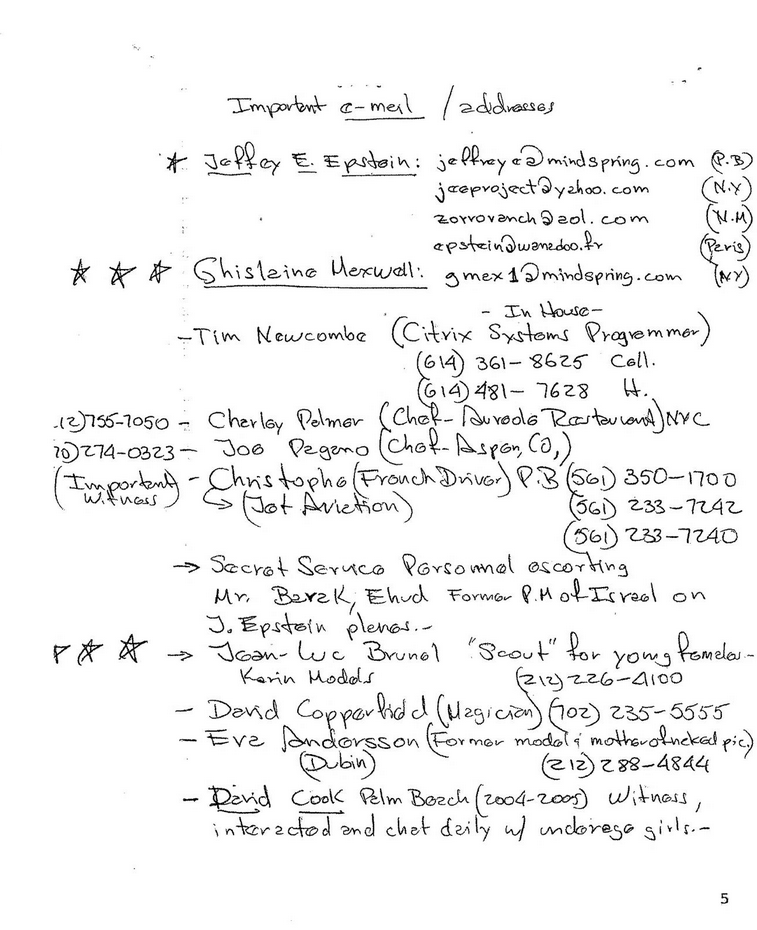 Important e-mail / addresses
★ Jeffey E. Epstein: jeffreye@mindspring.com (P.B)
jeeproject@yahoo.com (N.Y)
zorroranch@aol.com (N.M)
epstein@wanadoo.fr (Paris)
★ ★ ★ Ghislaine Maxwell: gmax1@mindspring.com (NY)
- In House -
- Tim Newcombe (Citrix Systems Programmer)
(614) 361-8625 Cell.
(614) 481-7628 H.
12)755-7050 - Charley Palmer (Chef- Aureole Restaurant) NYC
70)274-0323 - Joe Pagano (Chef- Aspen, CO,)
(Important Witness) - Christophe (French Driver) P.B (561) 350-1700
↳ (Jet Aviation) (561) 233-7242
(561) 233-7240
→ Secret Service Personnal escorting
Mr. Barak, Ehud Former P.M of Israel on
J. Epstein planes.-
★ ★ ★ → Jean-Luc Brunel "Scout" for young females-
Karin Models (212) 226-4100
- David Copperfield (Magician) (702) 235-5555
- Eva Andersson (Former model & mother of naked pic.)
(Dubin) (212) 288-4844
- David Cook Palm Beach (2004-2005) Witness,
interacted and chat daily w/ underage girls.-
5